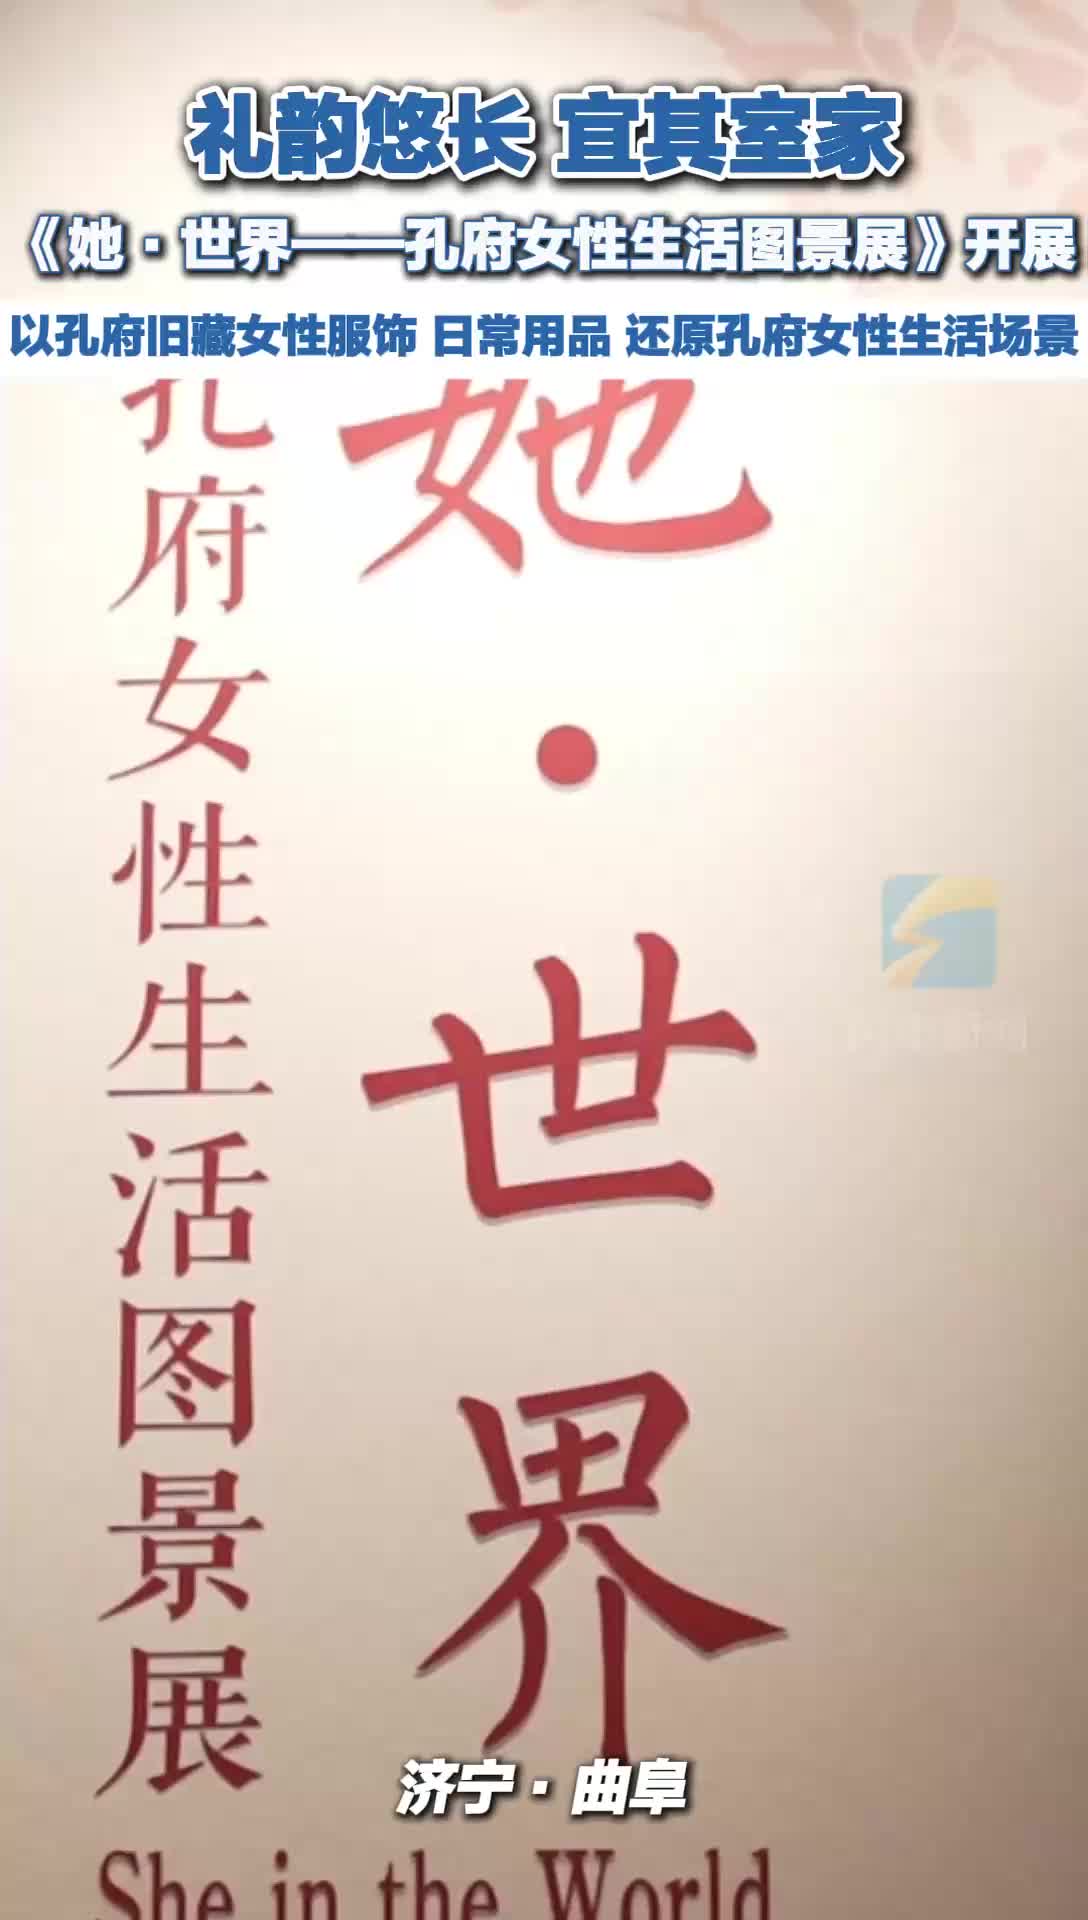 礼韵悠长 宜其室家
《她·世界——孔府女性生活图景展》开展
以孔府旧藏女性服饰 日常用品 还原孔府女性生活场景
她·世界
孔府女性生活图景展
济宁·曲阜
She in the World